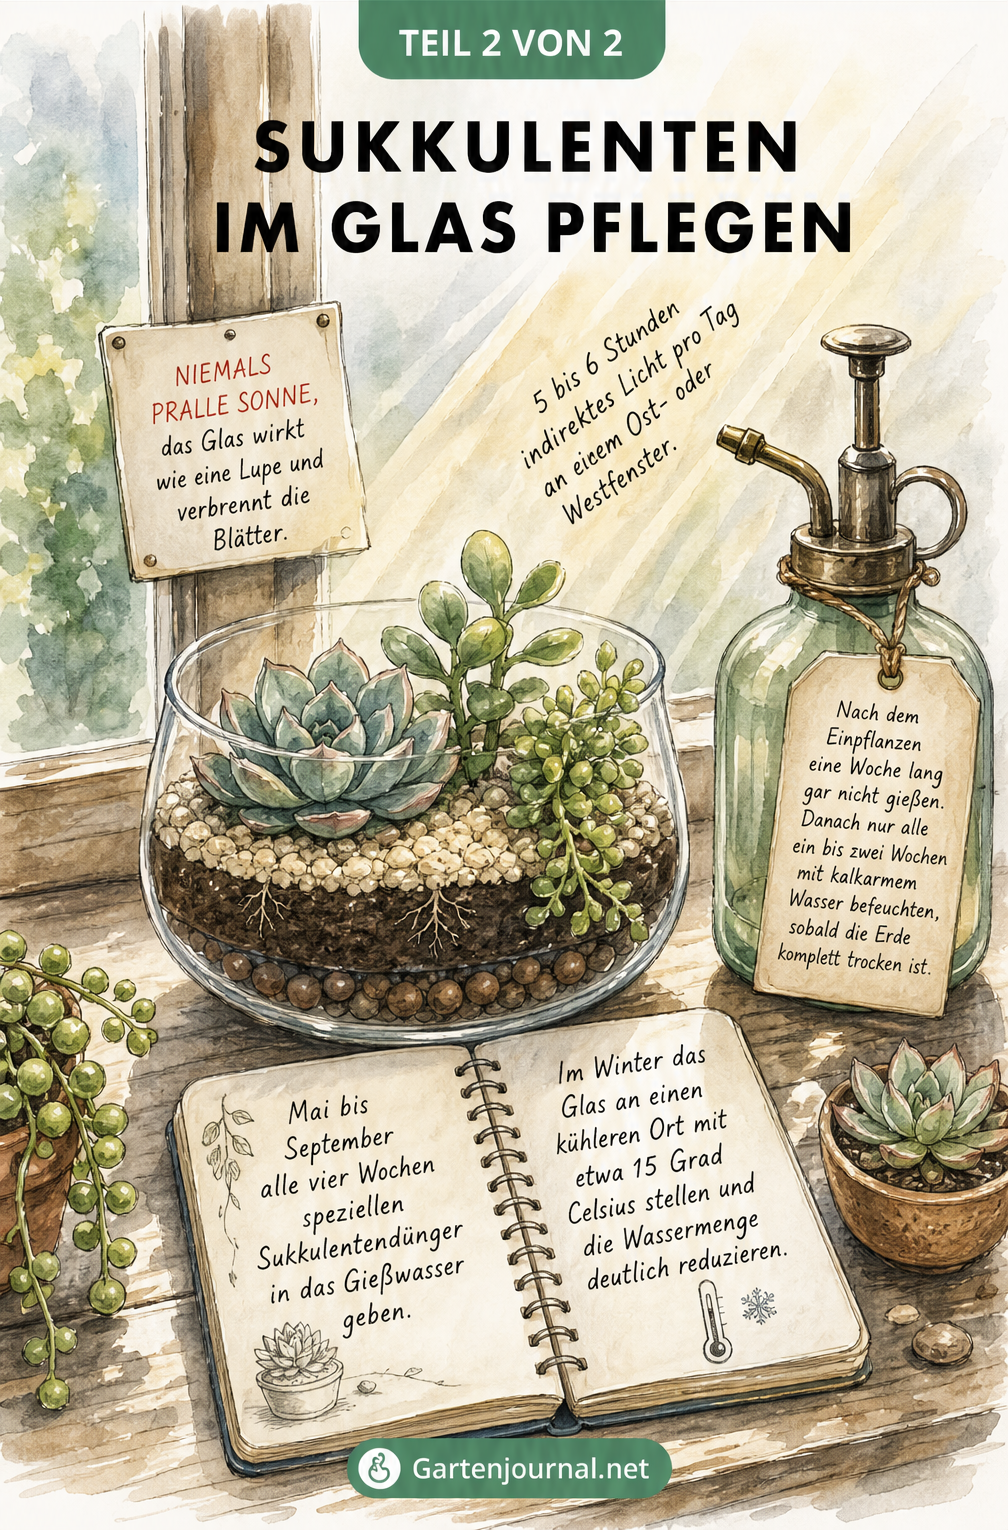 TEIL 2 VON 2
SUKKULENTEN
IM GLAS PFLEGEN
NIEMALS
PRALLE SONNE,
das Glas wirkt
wie eine Lupe und
verbrennt die
Blätter.
5 bis 6 Stunden
indirektes Licht pro Tag
an eicem Ost- oder
Westfenster.
Nach dem
Einpflanzen
eine Woche lang
gar nicht gießen.
Danach nur alle
ein bis zwei Wochen
mit kalkarmem
Wasser befeuchten,
sobald die Erde
komplett trocken ist.
Mai bis
September
alle vier Wochen
speziellen
Sukkulentendünger
in das Gießwasser
geben.
Im Winter das
Glas an einen
kühleren Ort mit
etwa 15 Grad
Celsius stellen und
die Wassermenge
deutlich reduzieren.
Gartenjournal.net